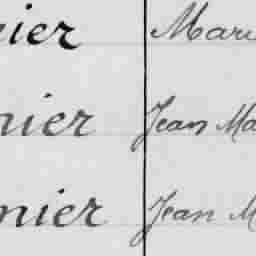 nier Mari
nier Jean Ma
nier Jean M